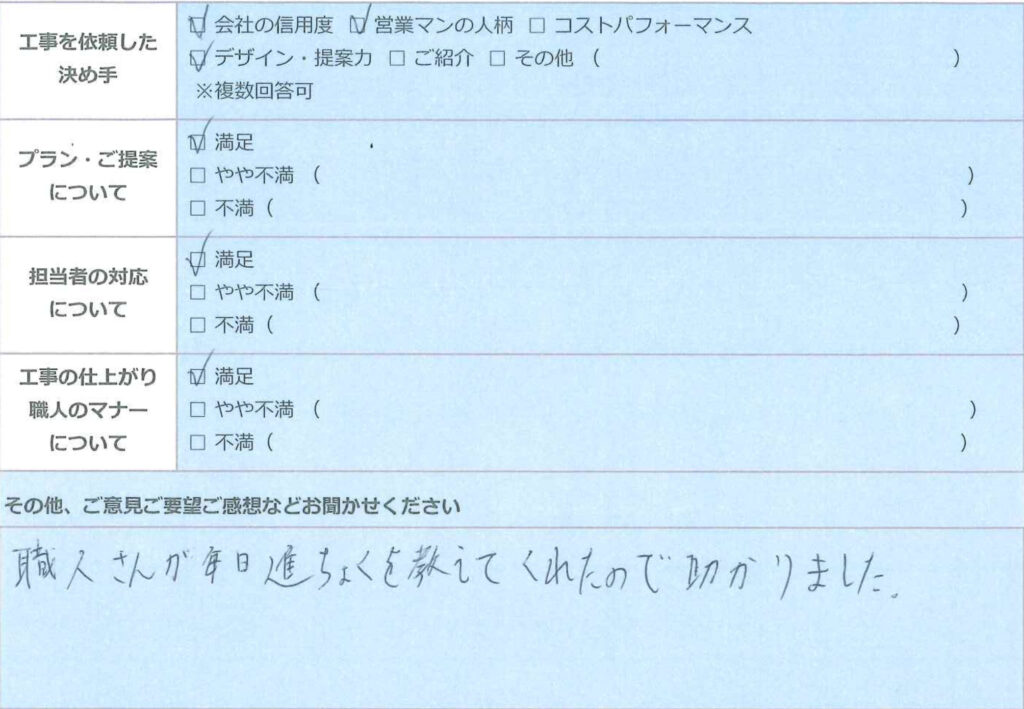 工事を依頼した
決め手
☑ 会社の信用度 ☑ 営業マンの人柄 □ コストパフォーマンス
☑ デザイン・提案力 □ ご紹介 □ その他 ( )
※複数回答可
プラン・ご提案
について
☑ 満足
□ やや不満 ( )
□ 不満 ( )
担当者の対応
について
☑ 満足
□ やや不満 ( )
□ 不満 ( )
工事の仕上がり
職人のマナー
について
☑ 満足
□ やや不満 ( )
□ 不満 ( )
その他、ご意見ご要望ご感想などお聞かせください
職人さんが毎日進ちょくを教えてくれたので助かりました。